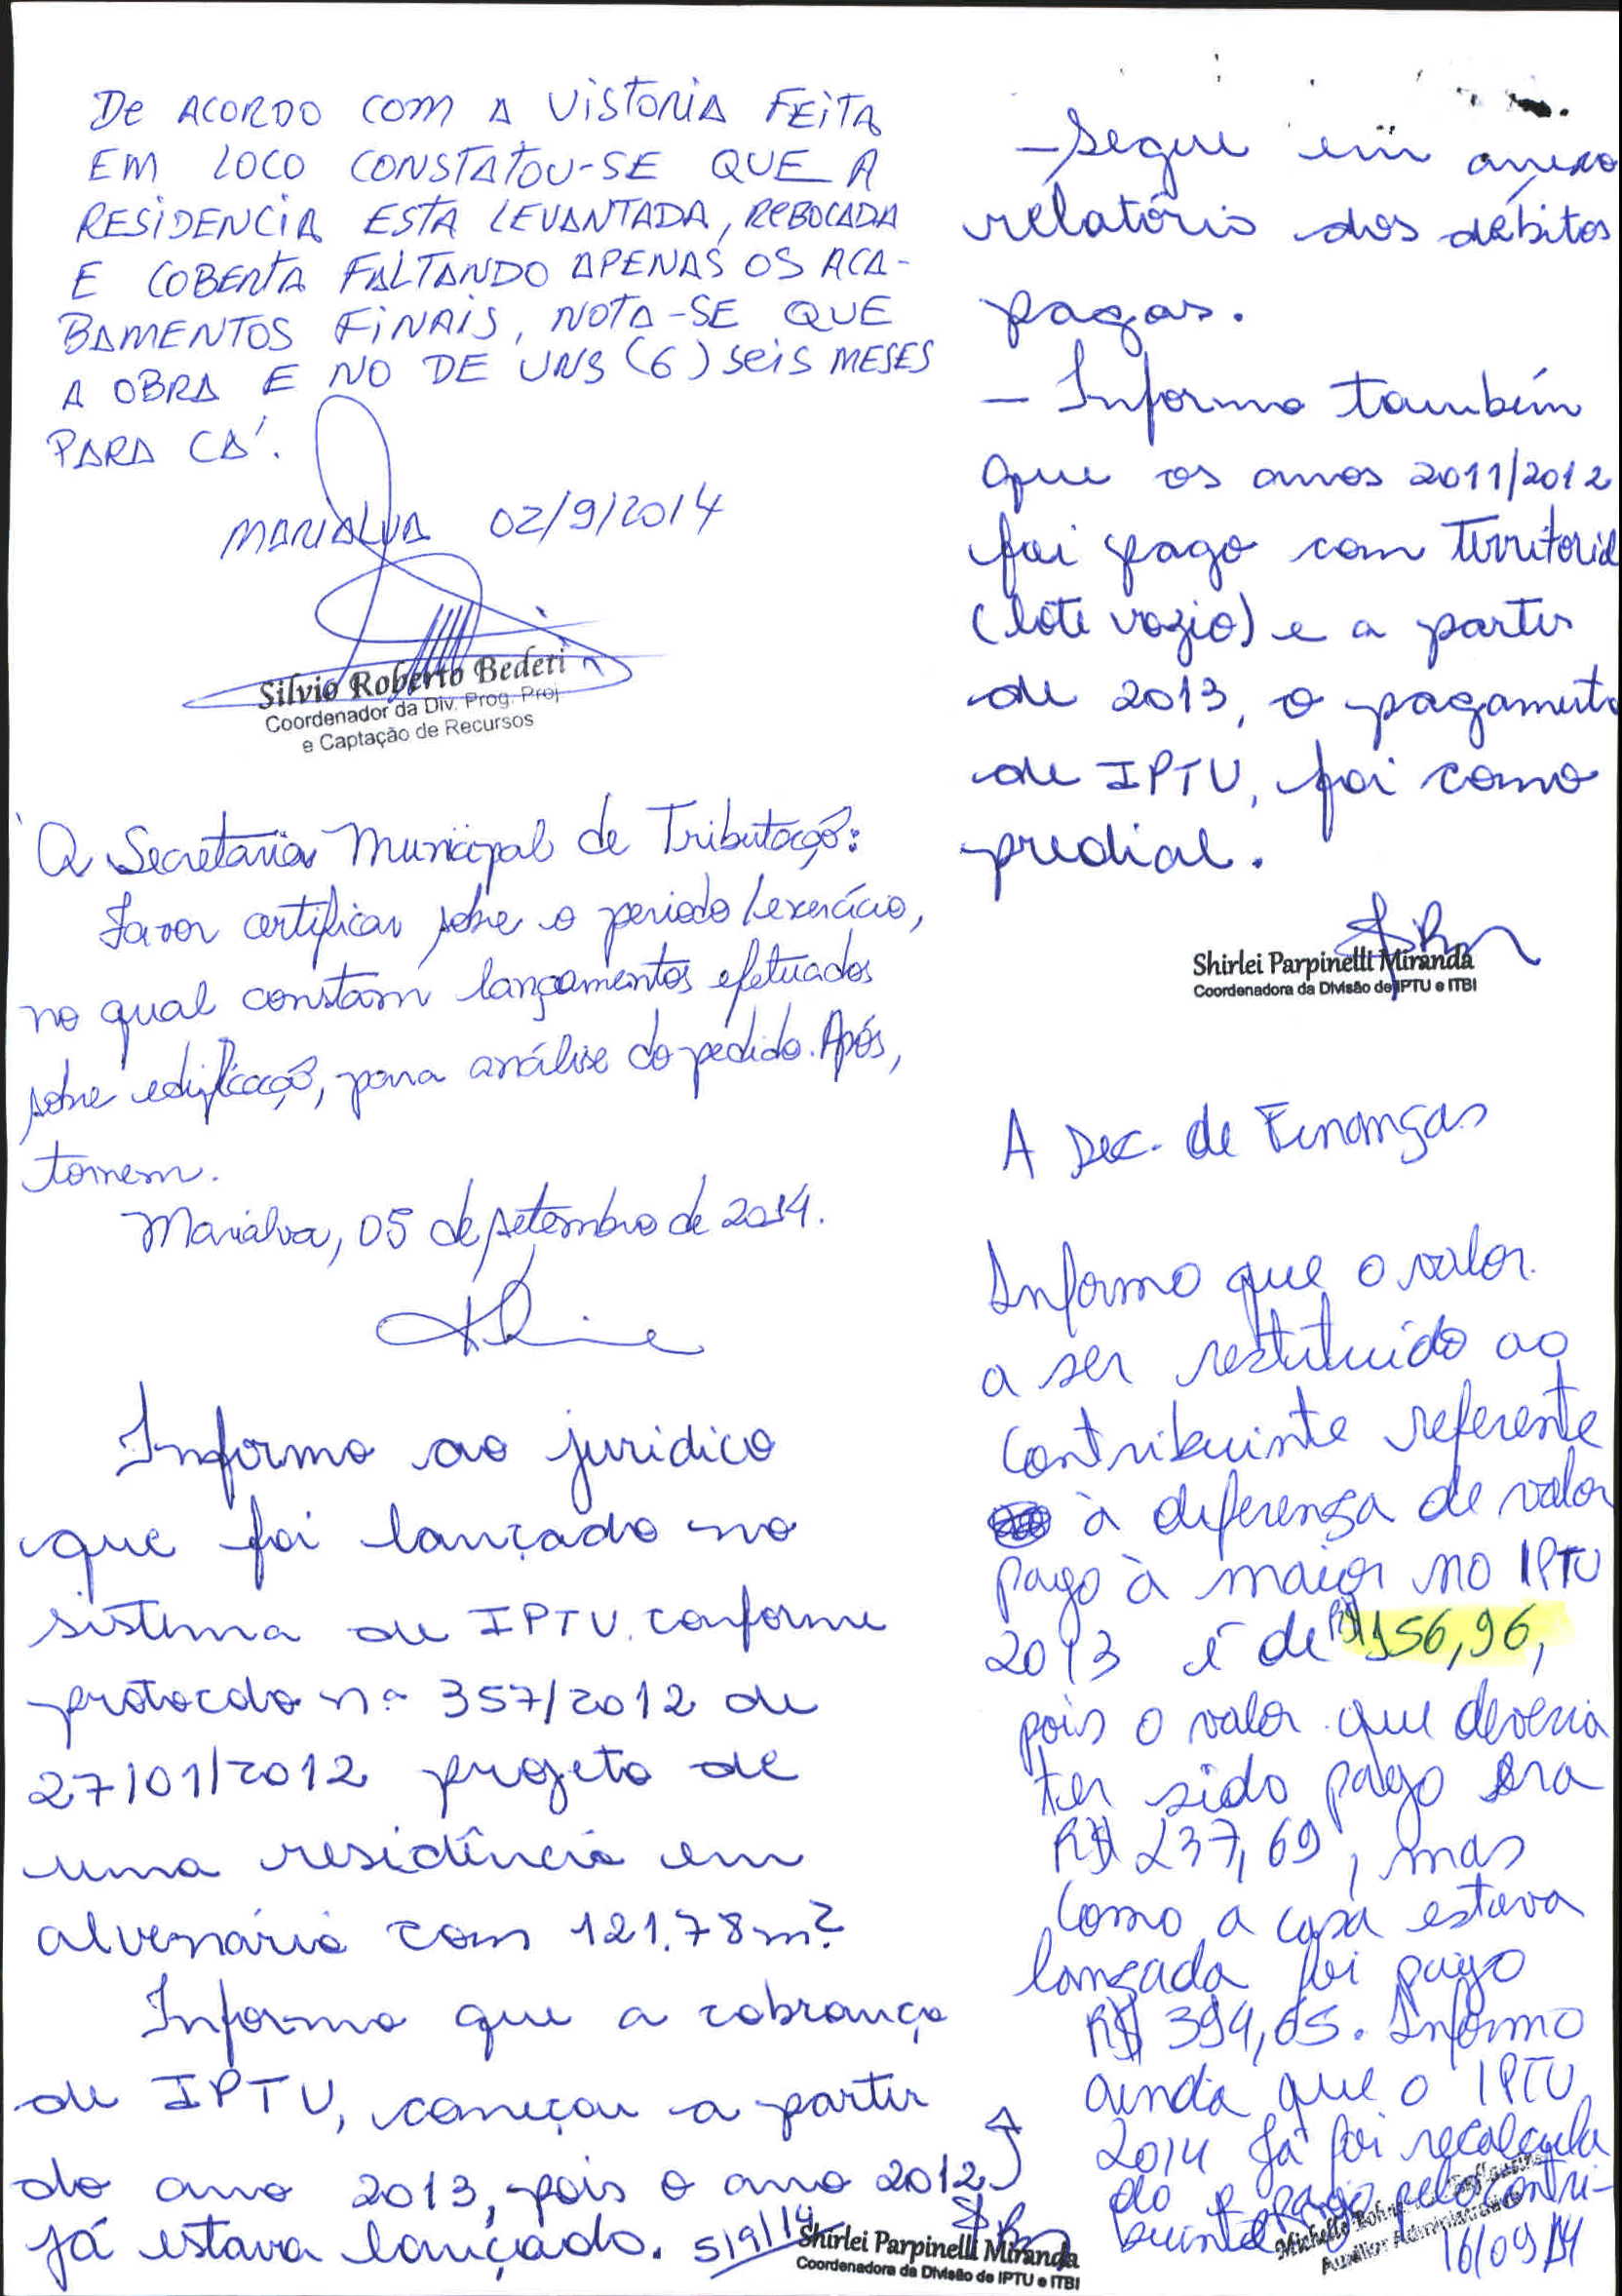 DE ACORDO COM A VISTORIA FEITA
EM LOCO CONSTATOU-SE QUE A
RESIDENCIA ESTA LEVANTADA, REBOCADA
E COBERTA FALTANDO APENAS OS ACA-
BAMENTOS FINAIS, NOTA-SE QUE
A OBRA E NO DE UNS (6) SEIS MESES
PARA CÁ.
MARIALVA 02/9/2014
Silvio Roberto Bederi
Coordenador da Div. Prog. Proj
e Captação de Recursos
A Secretaria Municipal de Tributação:
Favor certificar sobre o periodo/exercício,
no qual constam lançamentos efetuados
sobre edificação, para análise do pedido. Após,
tornem.
Marialva, 05 de setembro de 2014.
Informo ao juridico
que foi lançado no
sistema de IPTU. conforme
protocolo nº 357/2012 de
27/01/2012 projeto de
uma residência em
alvenária com 121.78m²
Informo que a cobrança
de IPTU, começou a partir
do ano 2013, pois o ano 2012
já estava lançado. 5/9/14
Shirlei Parpinelli Miranda
Coordenadora da Divisão de IPTU e ITBI
- Segue em anexo
relatório dos débitos
pagos.
- Informo também
que os anos 2011/2012
foi pago com Territorial
(lote vazio) e a partir
de 2013, o pagamento
de IPTU, foi como
predial.
Shirlei Parpinelli Miranda
Coordenadora da Divisão de IPTU e ITBI
A Sec. de Finanças
Informo que o valor
a ser restituido ao
Contribuinte referente
à diferença de valor
pago à maior no IPTU
2013 é de R$ 156,96,
pois o valor que deveria
ter sido pago era
R$ 237,69, mas
como a casa estava
lançada foi pago
R$ 394,65. Informo
ainda que o IPTU
2014 já foi recalcula
do e pago pelo contri-
buinte
Auxiliar Administrativo
16/09/14